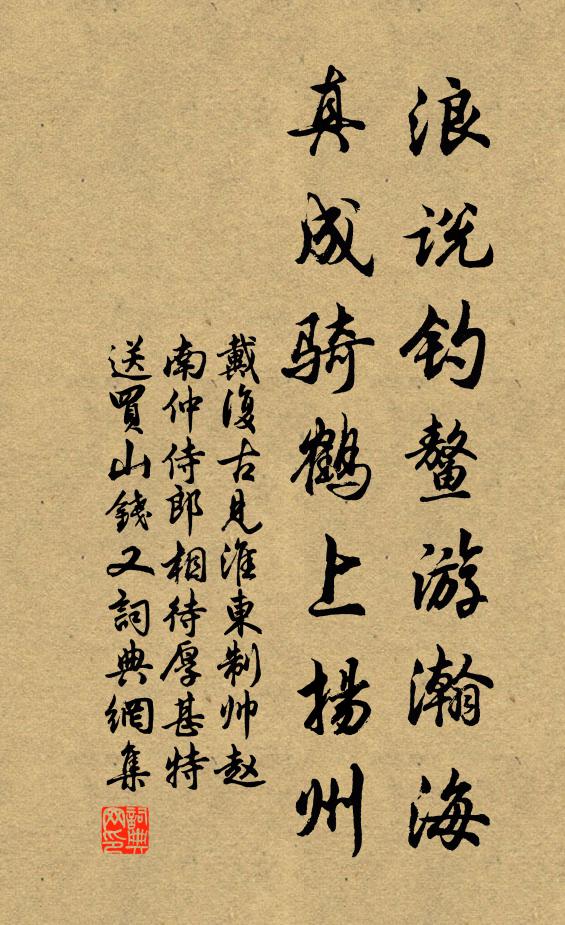 浪说钓鳌游瀚海
真成骑鹤上扬州
戴復古見淮東制帅赵
南仲侍郎相待厚甚特
送買山錢又詞典網集
詞典
网印